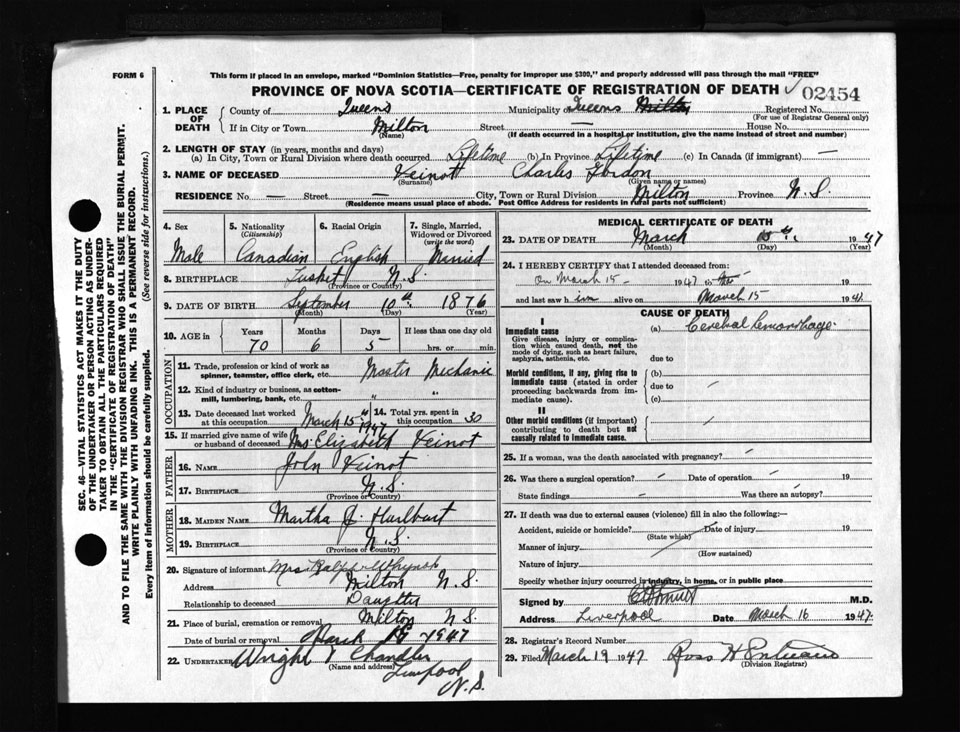 FORM 6
This form if placed in an envelope, marked "Dominion Statistics—Free, penalty for improper use $300," and properly addressed will pass through the mail "FREE"
PROVINCE OF NOVA SCOTIA—CERTIFICATE OF REGISTRATION OF DEATH ✓ 02454
1. PLACE OF DEATH
County of Queens Municipality Queens Milton Registered No.
(For use of Registrar General only)
If in City or Town Milton Street — House No.
(Name) (If death occurred in a hospital or institution, give the name instead of street and number)
2. LENGTH OF STAY (in years, months and days)
(a) In City, Town or Rural Division where death occurred Lifetime (b) In Province Lifetime (c) In Canada (if immigrant) —
3. NAME OF DECEASED Veinott Charles Gordon
(Surname) (Given name or names)
RESIDENCE No. — Street — City, Town or Rural Division Milton Province N.S.
(Residence means usual place of abode. Post Office Address for residents in rural parts not sufficient)
4. Sex 5. Nationality (Citizenship) 6. Racial Origin 7. Single, Married, Widowed or Divorced (write the word)
Male Canadian English Married
8. BIRTHPLACE Tusket N.S.
(Province or Country)
9. DATE OF BIRTH September 10th 1876
(Month) (Day) (Year)
10. AGE in Years Months Days If less than one day old
70 6 5 hrs. or min.
OCCUPATION
11. Trade, profession or kind of work as spinner, teamster, office clerk, etc. Master Mechanic
12. Kind of industry or business, as cotton-mill, lumbering, bank, etc. " "
13. Date deceased last worked at this occupation March 15 1947 14. Total yrs. spent in this occupation 30
15. If married give name of wife or husband of deceased Mrs Elizabeth Veinot
FATHER
16. NAME John Veinot
17. BIRTHPLACE N.S.
(Province or Country)
MOTHER
18. MAIDEN NAME Martha J. Hurlburt
19. BIRTHPLACE N.S.
(Province or Country)
20. Signature of informant Mrs. Ralph Whynot
Address Milton N.S.
Relationship to deceased Daughter
21. Place of burial, cremation or removal Milton N.S.
Date of burial or removal March 18 1947
22. UNDERTAKER Wright Chandler
(Name and address) Liverpool
N.S.
MEDICAL CERTIFICATE OF DEATH
23. DATE OF DEATH March 15th. 1947
(Month) (Day) (Year)
24. I HEREBY CERTIFY that I attended deceased from:
On March 15 1947 to
and last saw him alive on March 15 1947
CAUSE OF DEATH
I
Immediate cause (a) Cerebral hemorrhage
Give disease, injury or complication which caused death, not the mode of dying, such as heart failure, asphyxia, asthenia, etc. due to
Morbid conditions, if any, giving rise to immediate cause (stated in order proceeding backwards from immediate cause). (b)
due to
(c)
II
Other morbid conditions (if important) contributing to death but not causally related to immediate cause.
25. If a woman, was the death associated with pregnancy?
26. Was there a surgical operation? Date of operation 19
State findings Was there an autopsy?
27. If death was due to external causes (violence) fill in also the following:—
Accident, suicide or homicide? Date of injury 19
(State which)
Manner of injury (How sustained)
Nature of injury
Specify whether injury occurred in industry, in home, or in public place
Signed by M.D.
Address Liverpool Date March 16 1947
28. Registrar's Record Number
29. Filed March 19 1947 Ross H
(Division Registrar)
SEC. 46—VITAL STATISTICS ACT MAKES IT THE DUTY
OF THE UNDERTAKER OR PERSON ACTING AS UNDER-
TAKER TO OBTAIN ALL THE PARTICULARS REQUIRED
IN THE "CERTIFICATE OF REGISTRATION OF DEATH"
AND TO FILE THE SAME WITH THE DIVISION REGISTRAR WHO SHALL ISSUE THE BURIAL PERMIT.
WRITE PLAINLY WITH UNFADING INK. THIS IS A PERMANENT RECORD.
Every item of information should be carefully supplied. (See reverse side for instructions.)